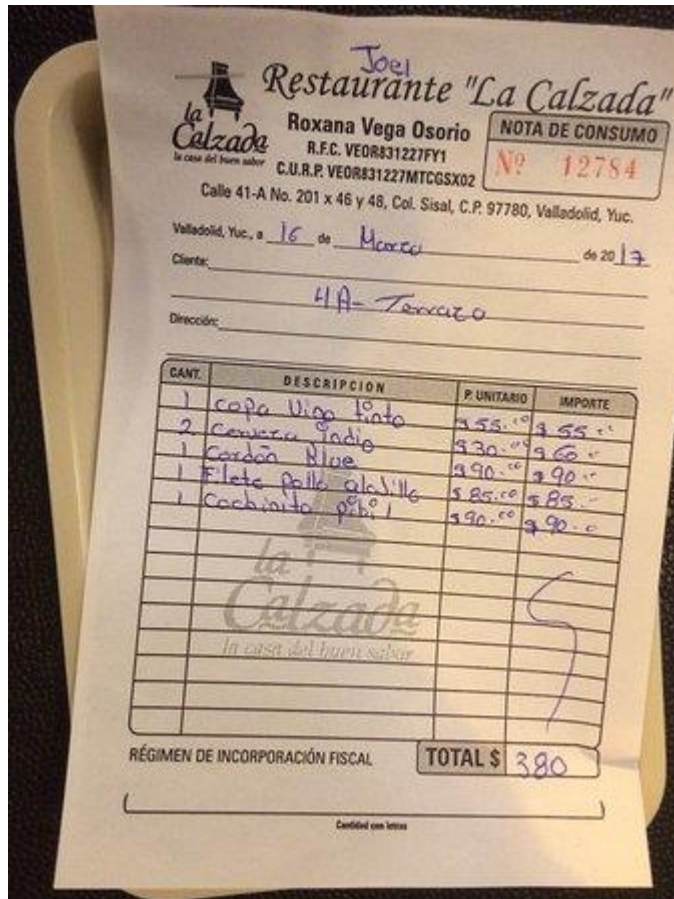 Joel
Restaurante "La Calzada"
la Calzada
la casa del buen sabor
Roxana Vega Osorio
R.F.C. VEOR831227FY1
C.U.R.P. VEOR831227MTCGSX02
NOTA DE CONSUMO
Nº 12784
Calle 41-A No. 201 x 46 y 48, Col. Sisal, C.P. 97780, Valladolid, Yuc.
Valladolid, Yuc., a 16 de Marzo de 2017
Cliente:
4A- Terraza
Dirección:
CANT. DESCRIPCION P. UNITARIO IMPORTE
1 copa Vino tinto $55.00 $55.00
2 Cerveza indio $30.00 $60.00
1 Cordon Blue $90.00 $90.00
1 Filete pollo $85.00 $85.-
1 Cochinita pibil $90.00 $90.00
la
Calzada
la casa del buen sabor
RÉGIMEN DE INCORPORACIÓN FISCAL TOTAL $ 380
Cantidad con letras